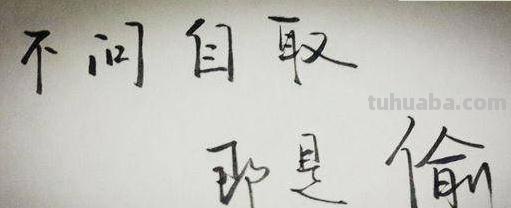 不问自取
tuhuaba.com
那是偷